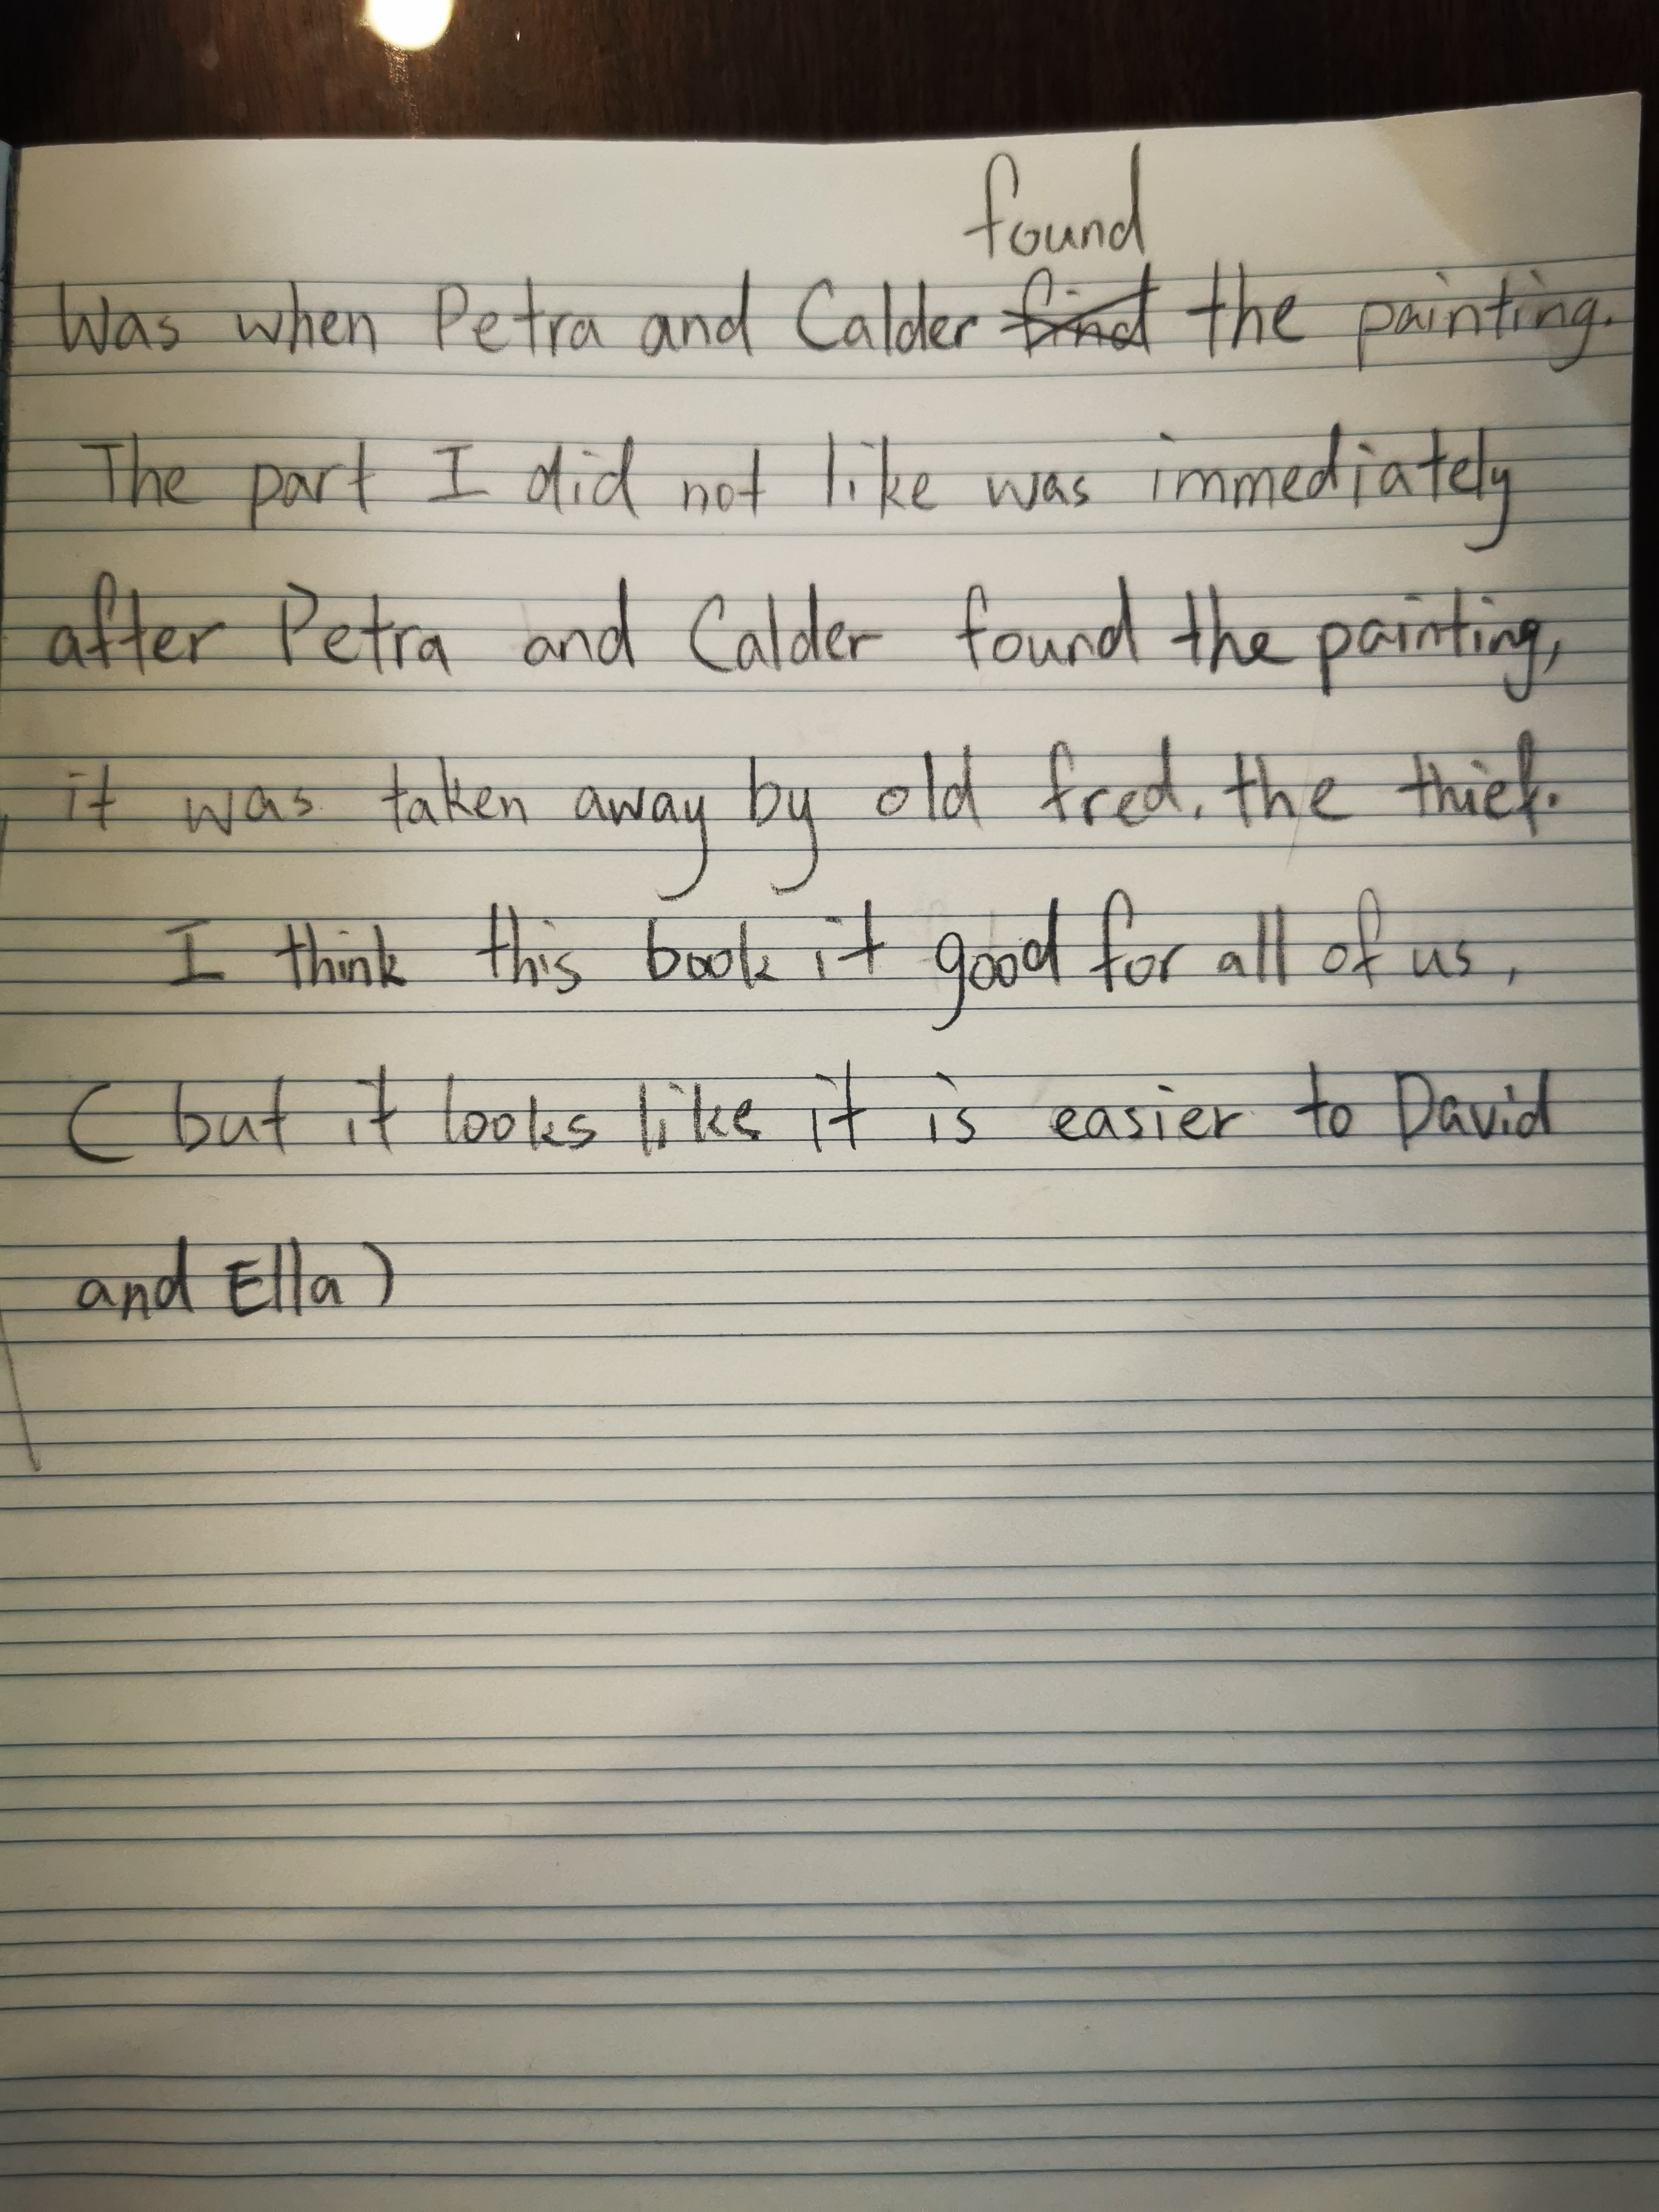 found
Was when Petra and Calder find the painting.
The part I did not like was immediately
after Petra and Calder found the painting,
it was taken away by old fred, the thief.
I think this book it good for all of us,
( but it looks like it is easier to David
and Ella )